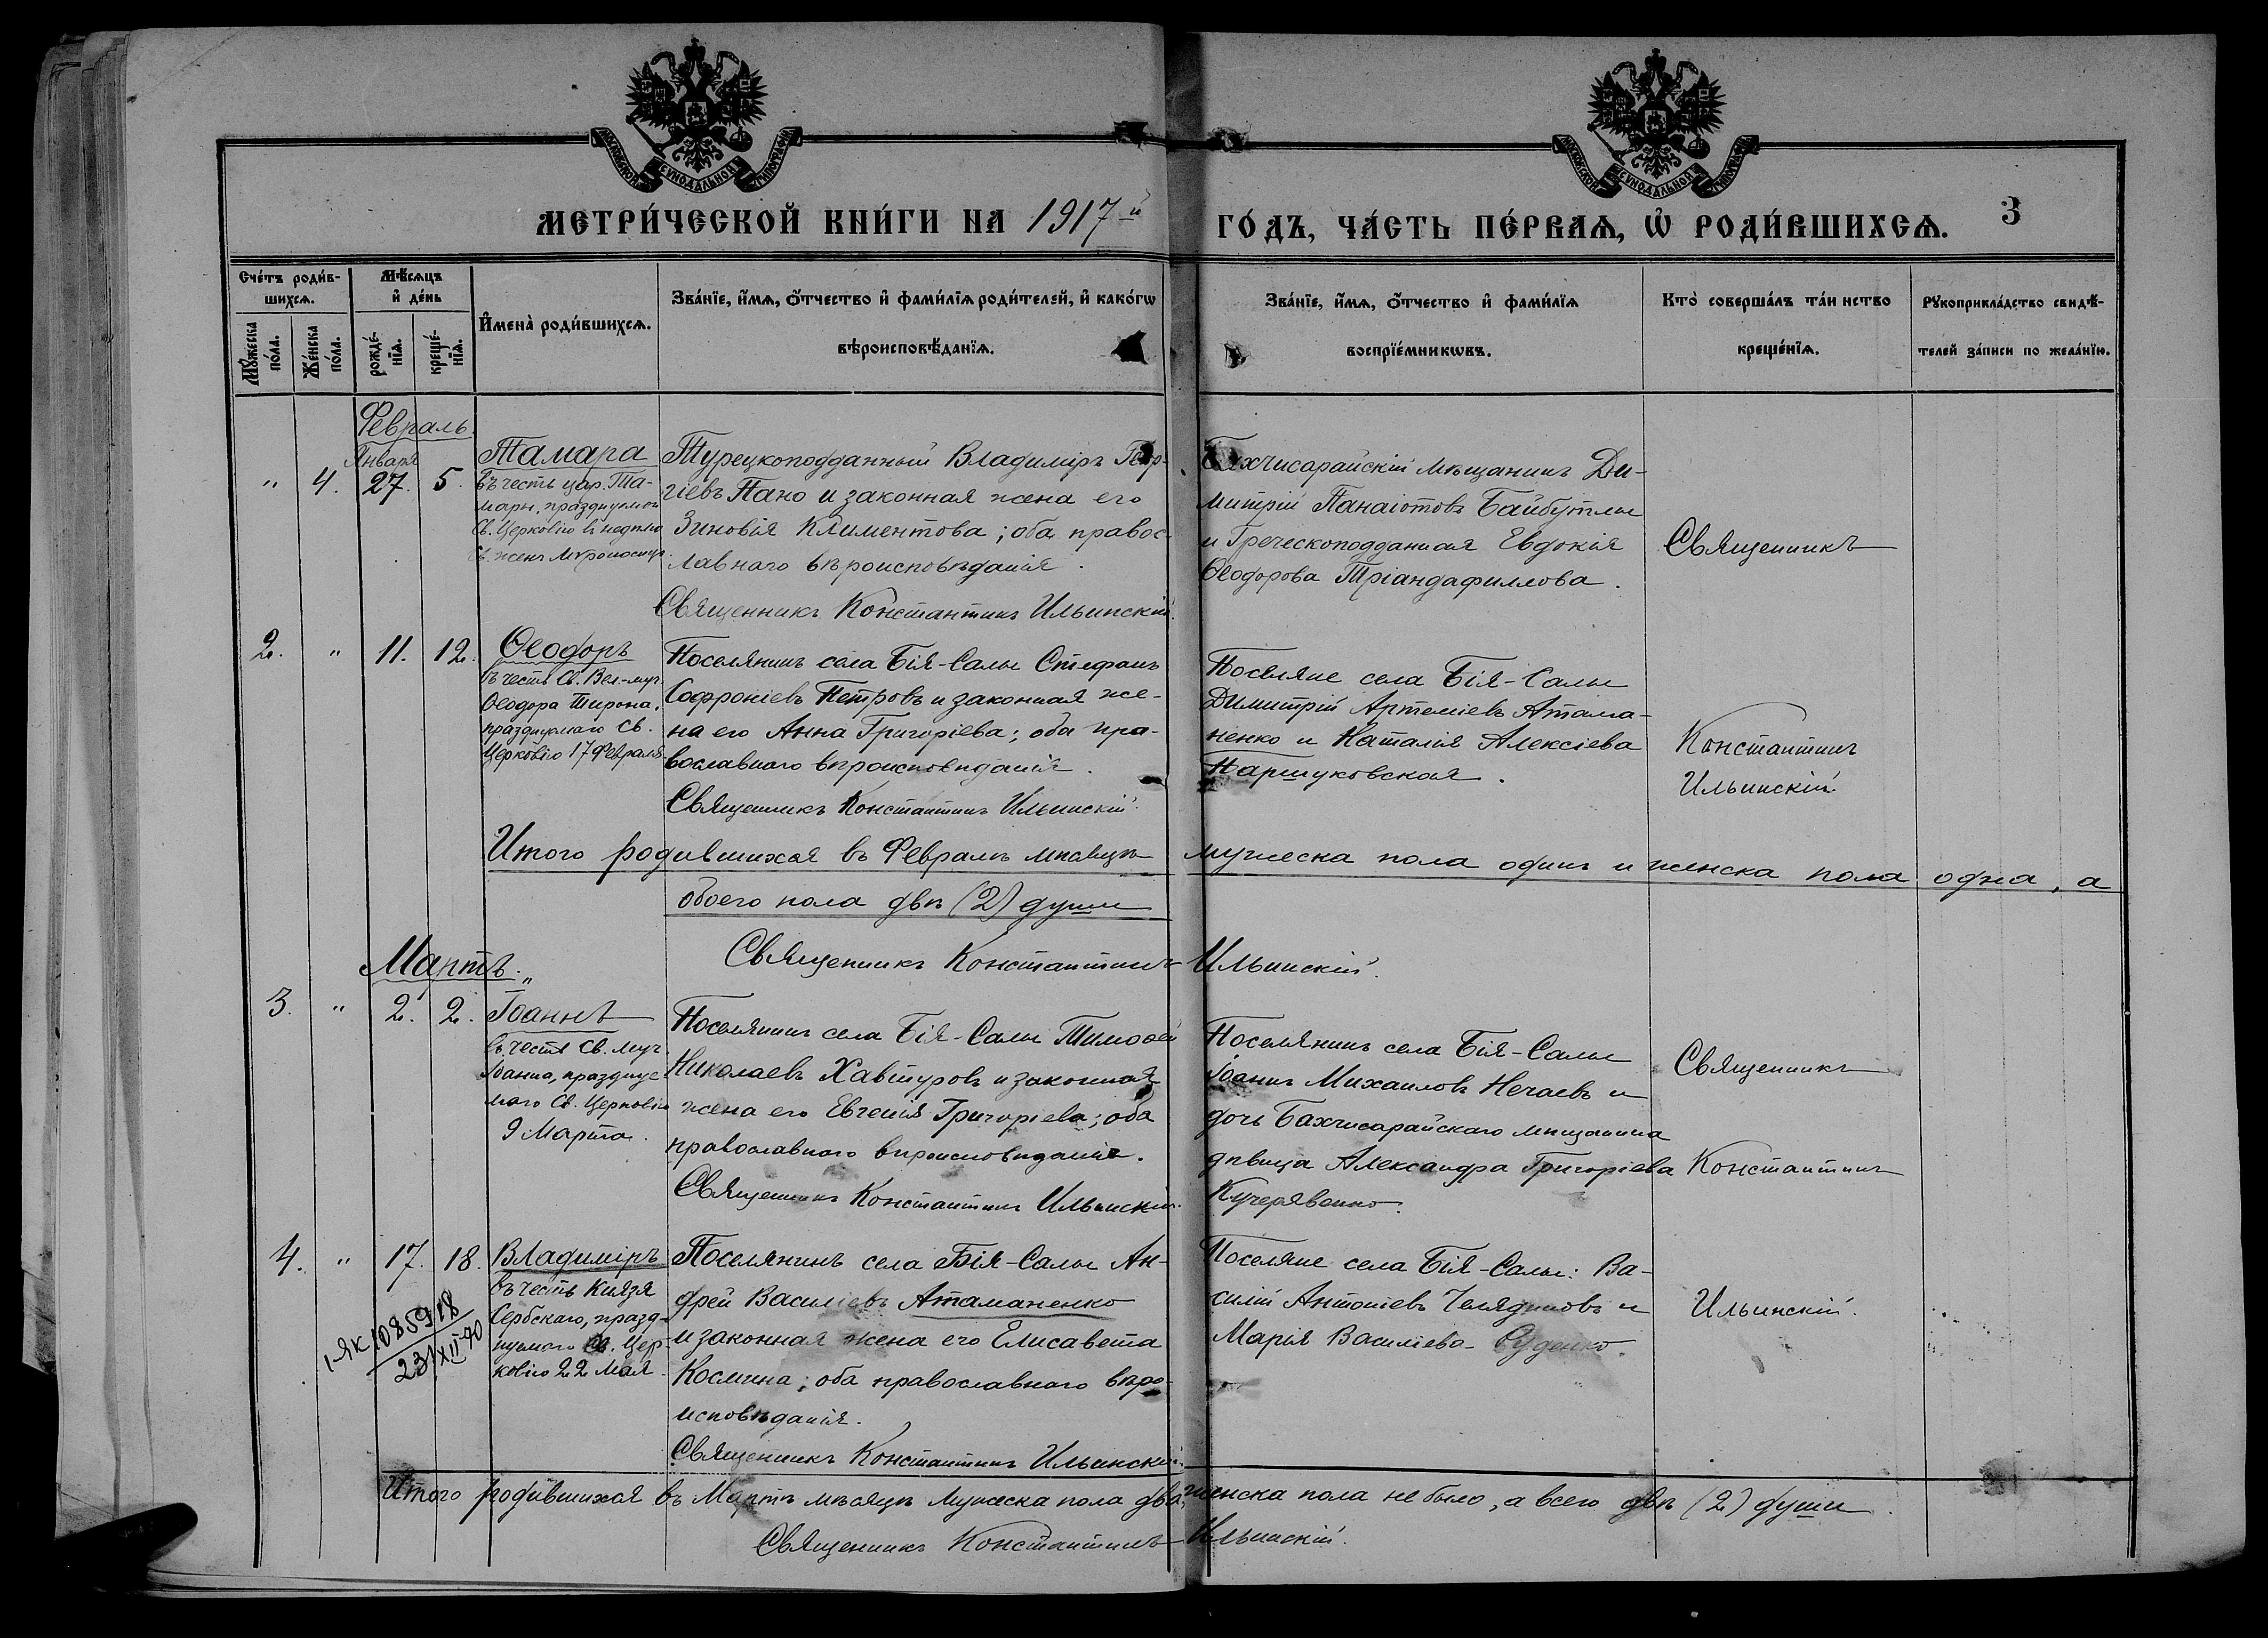 МОСКОВСКОЙ СѴНОДАЛЬНОЙ ТИПОГРАФІИ
МОСКОВСКОЙ СѴНОДАЛЬНОЙ ТИПОГРАФІИ
МЕТРИ́ЧЕСКОЙ КНИ́ГИ НА 1917й
ГО́ДЪ, ЧА́СТЬ ПЕ́РВАѦ, Ѽ РОДИ́ВШИХСѦ. 3
Сче́тъ роди́в-
шихсѧ.
Мꙋ́жеска по́ла.
Же́нска по́ла.
Мѣ́сѧцъ
и҆ де́нь
рожде́-нїѧ.
креще́-нїѧ.
И҆мена̀ роди́вшихсѧ.
Зва́нїе, и҆́мѧ, ѻ҆́тчество и҆ фами́лїѧ роди́телей, и҆ како́гѡ
вѣроисповѣ́данїѧ.
Зва́нїе, и҆́мѧ, ѻ҆́тчество и҆ фами́лїѧ
воспрїе́мникѡвъ.
Кто̀ соверша́лъ та́инство
креще́нїѧ.
Рꙋкоприкла́дство свидѣ́-
телей за́писи по жела́нїю.
Февраль.
Января
" 4. 27. 5.
Тамара
въ честь цар. Та-
мары, празднуемой
Св. Церковію въ недѣлю
Св. женъ Мѵроносицъ.
Турецкоподданный Владиміръ Геор-
гіевъ Пано и законная жена его
Зиновія Климентова; оба правос-
лавнаго вѣроисповѣданія.
Священникъ Константинъ Ильинскій.
Бахчисарайскій мѣщанинъ Ди-
митрій Панаіотовъ Байбутлы
и Греческоподданная Евдокія
Ѳеодорова Тріандафиллова.
Священникъ
2. " 11. 12.
Ѳеодоръ
въ честь Св. Вел.-муч.
Ѳеодора Тирона,
празднуемаго Св.
Церковію 17 Февраля.
Поселянинъ села Бія-Салы Стефанъ
Софроніевъ Петровъ и законная же-
на его Анна Григоріева; оба пра-
вославнаго вѣроисповѣданія.
Священникъ Константинъ Ильинскій.
Поселяне села Бія-Салы
Димитрій Артеміевъ Атама-
ненко и Наталія Алексіева
Паршуковская.
Константинъ
Ильинскій.
Итого родившихся въ Февралѣ мѣсяцѣ мужеска пола одинъ и женска пола одна, а
обоего пола двѣ (2) души
Священникъ Константинъ Ильинскій.
Мартъ.
3. " 2. 2.
Іоаннъ
въ честь Св. муч.
Іоанна, праздкуе-
маго Св. Церковію
9 Марта.
Поселянинъ села Бія-Салы Тимоѳей
Николаевъ Хавтуровъ и законная
жена его Евгенія Григоріева; оба
православнаго вѣроисповѣданія.
Священникъ Константинъ Ильинскій.
Поселянинъ села Бія-Салы
Іоаннъ Михаиловъ Нечаевъ и
дочь Бахчисарайскаго мѣщанина
дѣвица Александра Григоріева
Кучерявенко.
Священникъ
Константинъ
Ильинскій.
4. " 17. 18.
Владиміръ
въ честь Князя
Сербскаго, празд-
нуемаго Св. Цер-
ковію 22 Мая.
I-ЯК 1085918
23/XII-70
Поселянинъ села Бія-Салы Ан-
дрей Василіевъ Атаманенко
и законная жена его Елисавета
Космина; оба православнаго вѣро-
исповѣданія.
Священникъ Константинъ Ильинскій.
Поселяне села Бія-Салы: Ва-
силій Антоніевъ Челядиновъ и
Марія Василіева
Итого родившихся въ Мартѣ мѣсяцѣ мужеска пола два, женска пола не было, а всего двѣ (2) души.
Священникъ Константинъ Ильинскій.